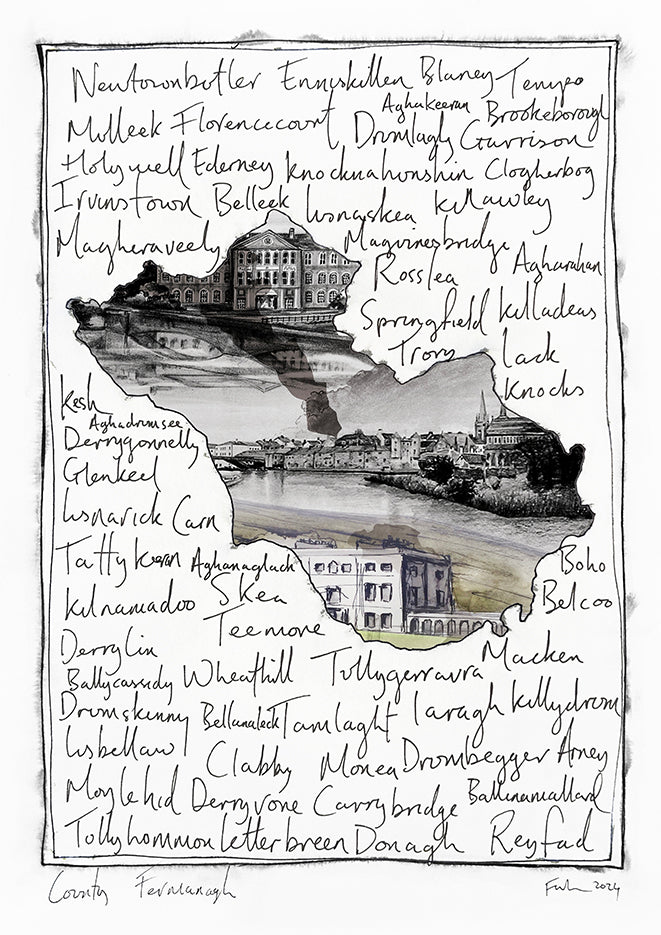 Newtownbutler Enniskillen Blaney Tempo
Aghakeeran Brookeborough
Mulleek Florencecourt Drumlaghy Garrison
Holywell Ederney Knocknahunshin Clogherbog
Irvinstown Belleek Lisnaskea Killawley
Magheraveely Maguinesbridge
Rosslea Agharahan
Springfield Killadeas
Trory Lack
Knocks
Kesh
Aghadrumsee
Derrygonnelly
Glenkeel
Lisnarick Carn
Tattykeeran Aghanaglack Boho
Kilnamadoo Skea Belcoo
Teemore
Derrylin Macken
Ballycassidy Wheathill Tullygerravra
Drumskinny Bellanaleck Tamlaght Laragh Killydrum
Lisbellaw Clabby Monea Drumbegger Arney
Moylehid Derryvone Carrybridge Ballinamallard
Tullyhommon Letterbreen Donagh Reyfad
County Fermanagh 2024